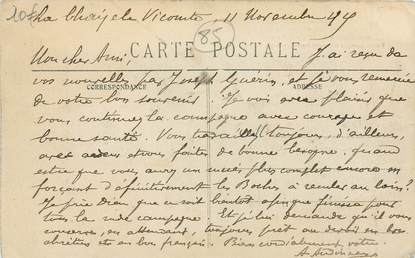 La Chaize le Vicomte, 11 Novembre 1915
85
Mon cher Ami,
CARTE POSTALE
J'ai reçu de
vos nouvelles par Joseph Guerin, et je vous remercie
CORRESPONDANCE
ADRESSE
de votre bon souvenir. Je vois avec plaisir que
vous continuez la campagne avec courage et
bonne santé. Vous travaillez toujours, d'ailleurs,
avec ardeur et vous faites de bonne besogne. Quand
est-ce que vous aurez un succès plus complet encore en
forçant définitivement les Boches à reculer au loin?
Je prie Dieu que ce soit bientôt afin que finisse pour
tous la rude campagne. Et je lui demande qu'il vous
conserve, en attendant, toujours prêt au devoir en bon
et en bon français. Bien cordialement votre